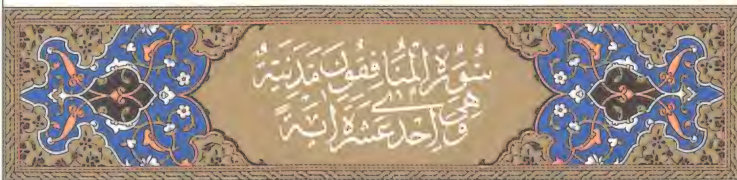 سُورَةُ الْمُنَافِقُونَ مَدَنِيَّةٌ
وَهِيَ إِحْدَى عَشْرَةَ آيَةً